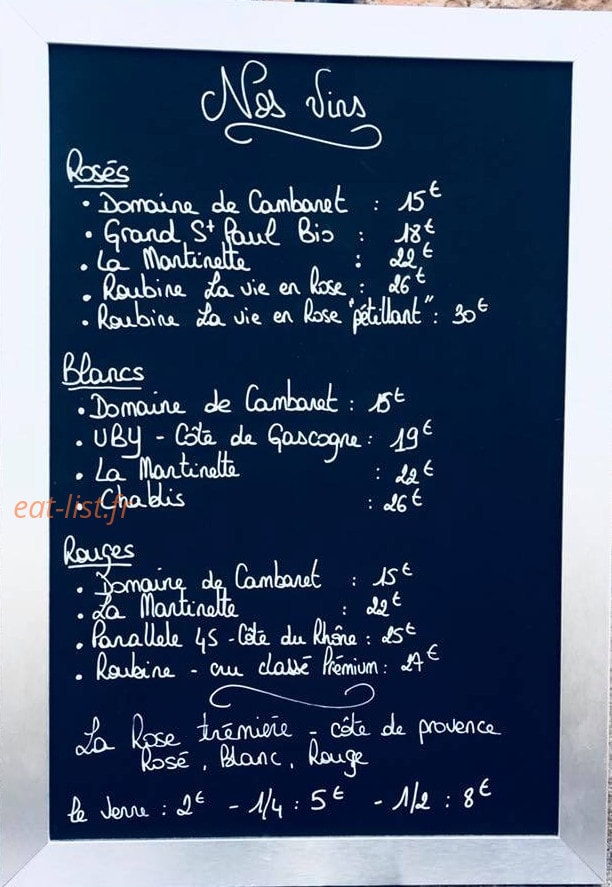 Nos Vins
Rosés
• Domaine de Cambaret : 15€
• Grand St Paul Bio : 18€
• La Martinette : 22€
• Roubine La vie en Rose : 26€
• Roubine La vie en Rose "pétillant" : 30€
Blancs
• Domaine de Cambaret : 15€
• UBY - Côte de Gascogne : 19€
• La Martinette : 22€
• Chablis : 26€
eat-list.fr
Rouges
• Domaine de Cambaret : 15€
• La Martinette : 22€
• Parallele 45 - Côte du Rhône : 25€
• Roubine - cru classé Prémium : 27€
La Rose trémière - côte de provence
Rosé, Blanc, Rouge
le verre : 2€ - 1/4 : 5€ - 1/2 : 8€